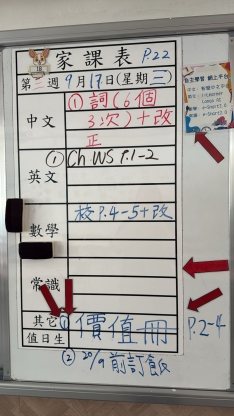 家課表 P.22
第三週 9月17日(星期三)
中文 ①詞(6個
3次)+改
正
英文 ① Ch WS P.1-2
數學 校P.4-5+改
常識
其它 ① 價值冊 P.2-4
值日生
② 20/9前訂飯
自主學習 網上平台